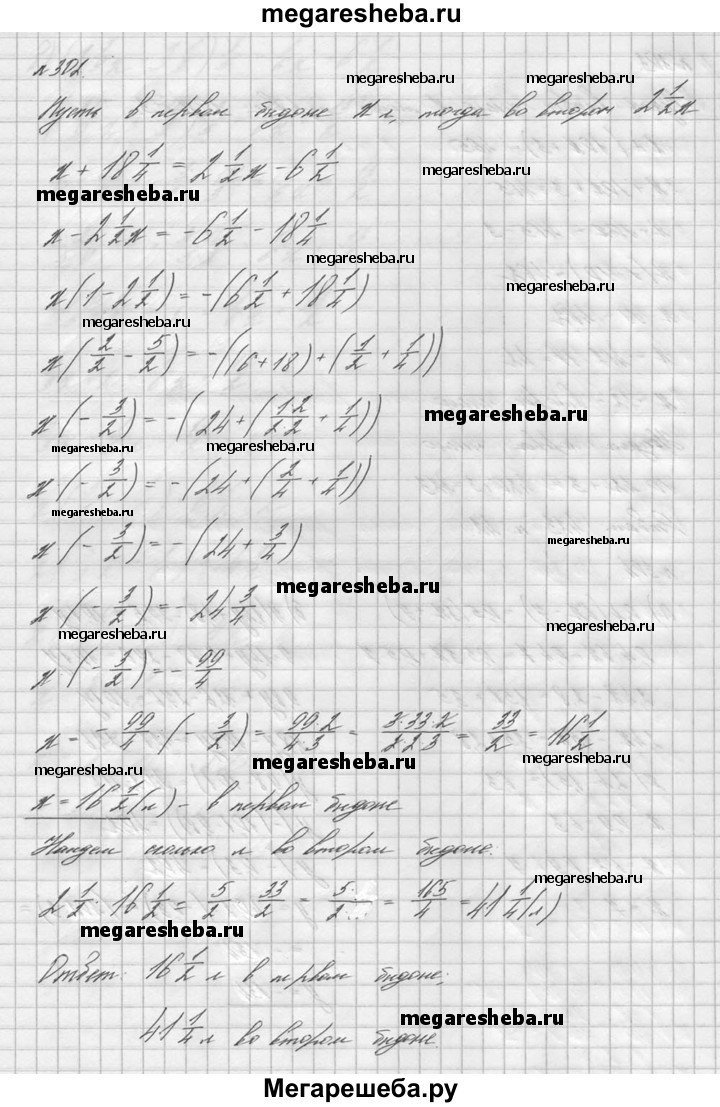 megaresheba.ru
№302.
megaresheba.ru megaresheba.ru
Пусть в первом бидоне x л, тогда во втором 2 1/2 x
x + 18 1/4 = 2 1/2 x - 6 1/2
megaresheba.ru
megaresheba.ru
x - 2 1/2 x = - 6 1/2 - 18 1/4
megaresheba.ru
x (1 - 2 1/2) = - (6 1/2 + 18 1/4)
megaresheba.ru
megaresheba.ru
x (2/2 - 5/2) = - ((6+18) + (1/2 + 1/4))
x (- 3/2) = - (24 + (1·2/2·2 + 1/4))
megaresheba.ru
megaresheba.ru megaresheba.ru
x (- 3/2) = - (24 + (2/4 + 1/4))
megaresheba.ru
x (- 3/2) = - (24 + 3/4)
megaresheba.ru
megaresheba.ru
x · (- 3/2) = - 24 3/4
megaresheba.ru megaresheba.ru
x · (- 3/2) = - 99/4
x = - 99/4 (- 3/2) = 99·2/4·3 = 3·33·2/2·2·3 = 33/2 = 16 1/2
megaresheba.ru megaresheba.ru megaresheba.ru
x = 16 1/2 (л) - в первом бидоне
Найдем сколько л во втором бидоне.
megaresheba.ru
2 1/2 · 16 1/2 = 5/2 · 33/2 = 5·/2·: = 165/4 = 41 1/4 (л)
megaresheba.ru
Ответ: 16 1/2 л в первом бидоне;
megaresheba.ru
41 1/4 л во втором бидоне.
Мегарешеба.ру